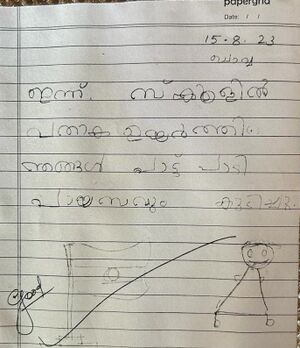 papergrid
Date: / /
15-8-23
ചൊവ്വ
ഇന്ന് സ്കൂളിൽ
പതാക ഉയർത്തി.
ഞങ്ങൾ പാട്ട് പാടി
പായസവും കുടിച്ചു.
Good